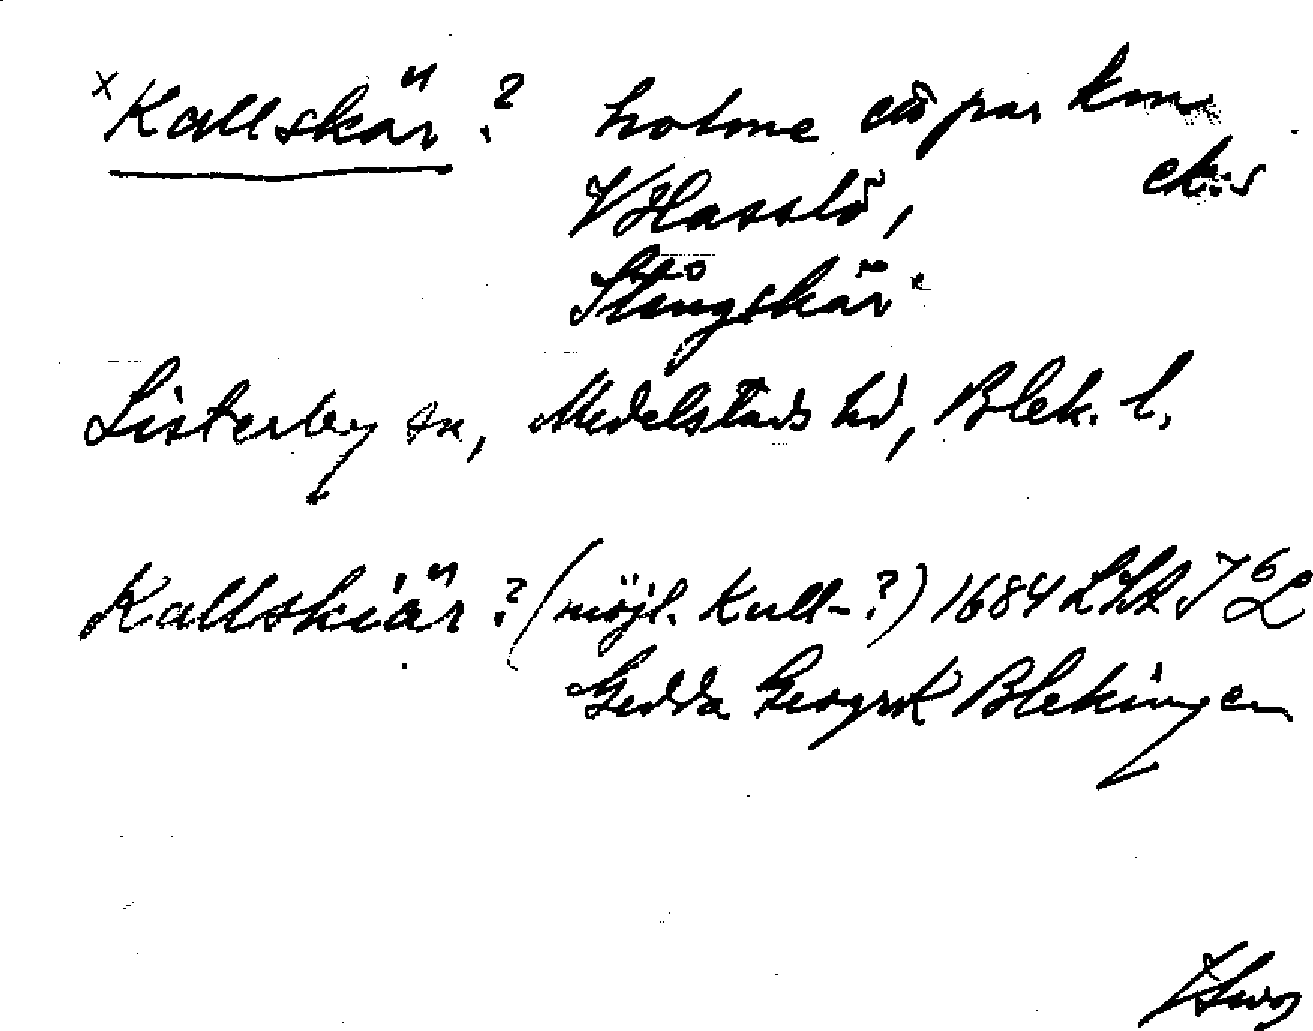 x Kallskär ? holme ett par km
V Hasslö, ek.s
Stångskär
Listerby sn, Medelstads hd, Blek. l.
Kallskiär ? (möjl. Kull-?) 1684 LSA I 6
Gedda Geogr K Blekingen